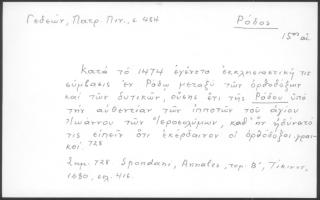 Γεδεών, Πατρ. Πιν., σ. 484
Ρόδος
15ος αἰ.
Κατά τό 1474 ἐγένετο ἐκκλησιαστική τις
σύμβασις ἐν Ρόδῳ μεταξύ τῶν ὀρθοδόξων
καί τῶν δυτικῶν, οὔσης ἔτι τῆς Ρόδου ὑπό
τήν αὐθεντίαν τῶν ἱπποτῶν τοῦ ἁγίου
Ἰωάννου τῶν Ἱεροσολύμων, καθ' ἥν ἠδύνατό
τις εἰπεῖν ὅτι ἐκέρδαινον οἱ ὀρθόδοξοι γραι-
κοί 728
Σημ. 728 Spondani, Annales, τομ. Β', Ticinir,
1680, σελ. 416.